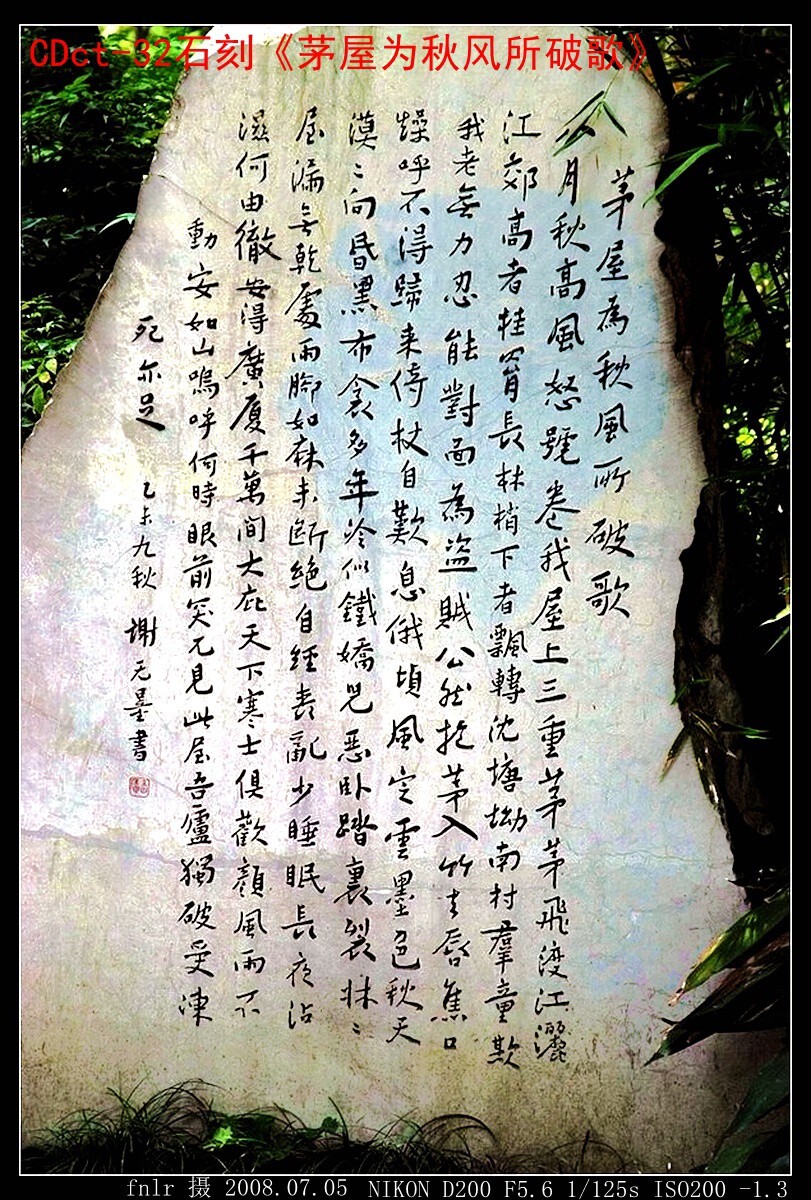 CDct-32石刻《茅屋为秋风所破歌》
茅屋為秋風所破歌
八月秋高風怒號卷我屋上三重茅茅飛渡江灑
江郊高者挂罥長林梢下者飄轉沈塘坳南村羣童欺
我老無力忍能對面為盜賊公然抱茅入竹去唇焦口
燥呼不得歸來倚杖自歎息俄頃風定雲墨色秋天
漠〻向昏黑布衾多年冷似鐵嬌兒惡臥踏裏裂牀〻
屋漏無乾處雨腳如麻未斷絕自經喪亂少睡眠長夜沾
濕何由徹安得廣廈千萬間大庇天下寒士俱歡顏風雨不
動安如山嗚呼何時眼前突兀見此屋吾廬獨破受凍
死亦足 乙未九秋 謝无量書
fnlr 摄 2008.07.05 NIKON D200 F5.6 1/125s ISO200 -1.3